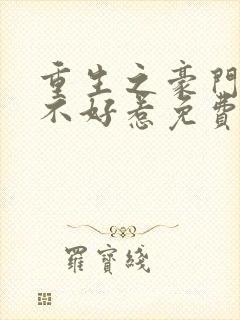 重生之豪門
不好惹免費
羅寶綫